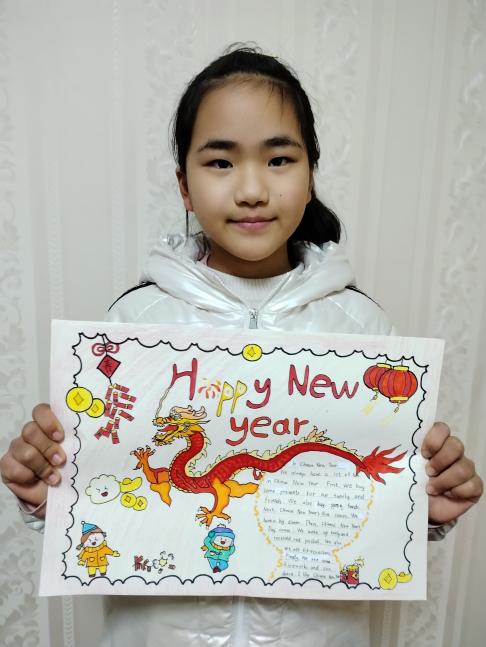 Happy New
year
In Chinese New Year
We always have a lot of
in Chinese New Year. First, We buy
some presents for our family and
friends. We also buy yummy foods.
Next, Chinese New Year's Eve comes. We
have a big dinner. Then, Chinese New Year's
Day comes. We wake up early and
received red pocket. We also
set off firecrackers.
Finally, We see some
fireworks and lion
dance. I like Chinese New